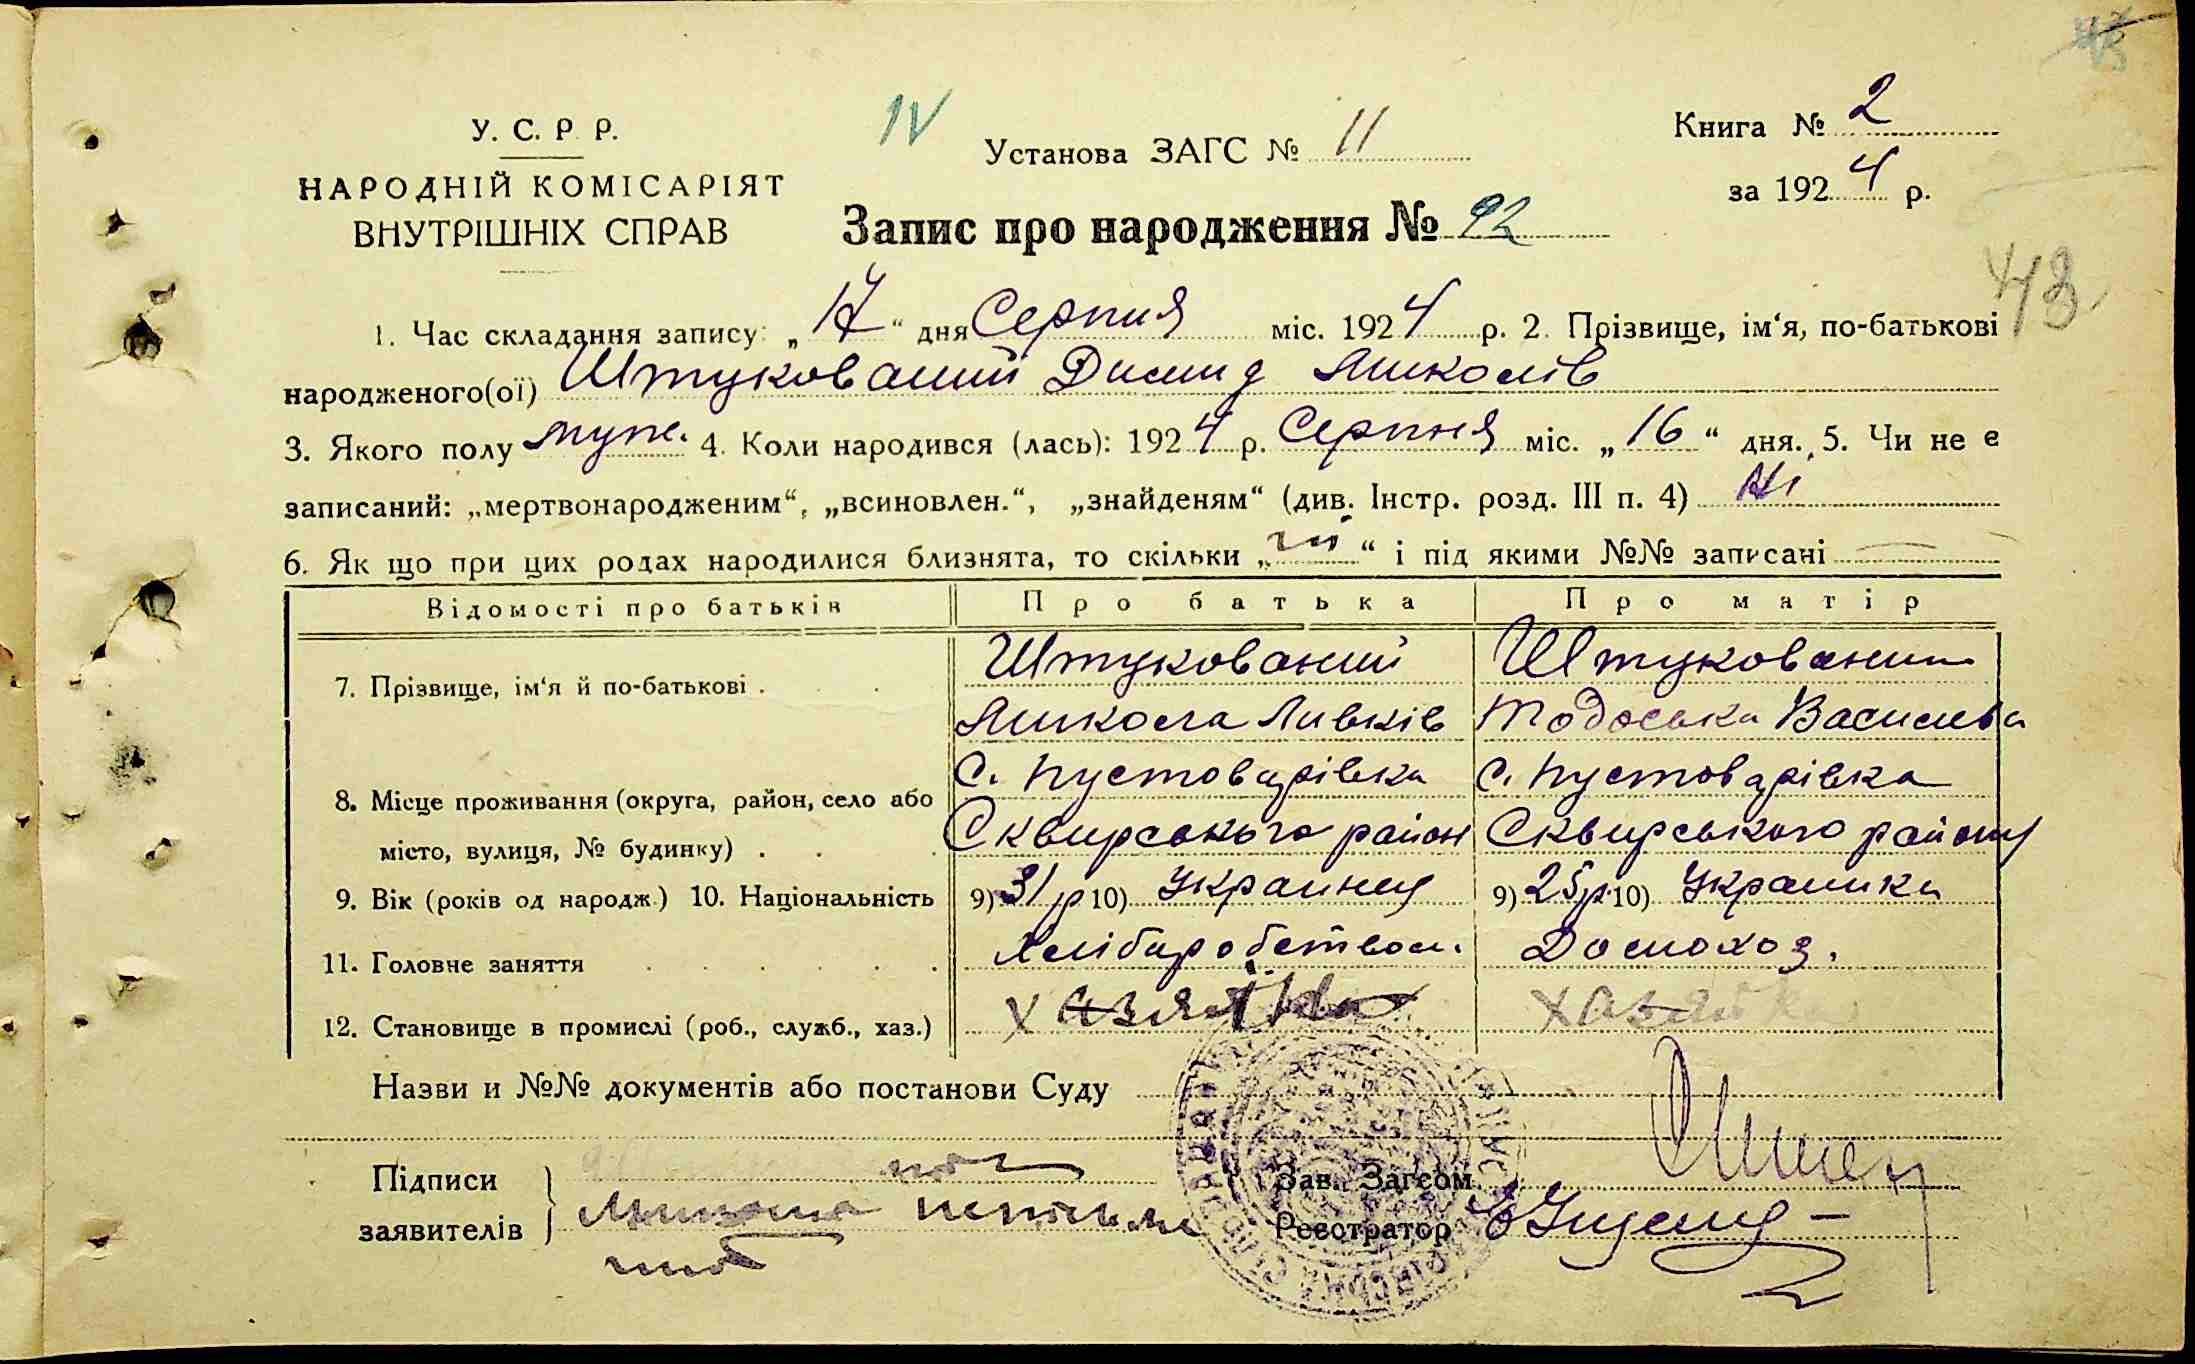 У. С. Р. Р.
НАРОДНІЙ КОМІСАРІЯТ
ВНУТРІШНІХ СПРАВ
IV
Установа ЗАГС № 11
Книга № 2
за 1924 р.
Запис про народження № 92
43
1. Час складання запису: „17“ дня Серпня міс. 1924 р. 2. Прізвище, ім‘я, по-батькові
народженого(ої) Штукований Димид Миколів
3. Якого полу муж. 4. Коли народився (лась): 1924 р. Серпня міс. „16“ дня. 5. Чи не є
записаний: „мертвонародженим“, „всиновлен.“, „знайденям“ (див. Інстр. розд. III п. 4) Ні
6. Як що при цих родах народилися близнята, то скільки „ні“ і під якими №№ записані —
Відомості про батьків Про батька Про матір
7. Прізвище, ім‘я й по-батькові . Штукований Штуковании
Микола Ливків Тодоська Василева
8. Місце проживання (округа, район, село або С. Пустоварівка С. Пустоварівка
місто, вулиця, № будинку) . Сквирського район Сквирського району
9. Вік (років од народж.) 10. Національність 9) 31 р 10) Українец 9) 25 р. 10) Украинка
11. Головне заняття Хлібаробством. Домохоз.
12. Становище в промислі (роб., служб., хаз.) хазяйка хазяйка
Назви и №№ документів або постанови Суду
Підписи
заявителів
Зав. Загсом
Реєстратор